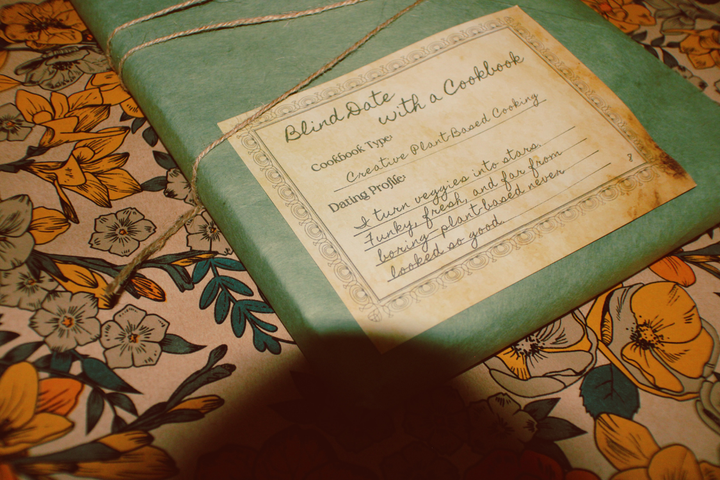 Blind Date with a Cookbook
Cookbook Type:
Creative Plant Based Cooking
Dating Profile:
I turn veggies into stars.
Funky, fresh, and far from
boring-plant-based never
looked so good
?